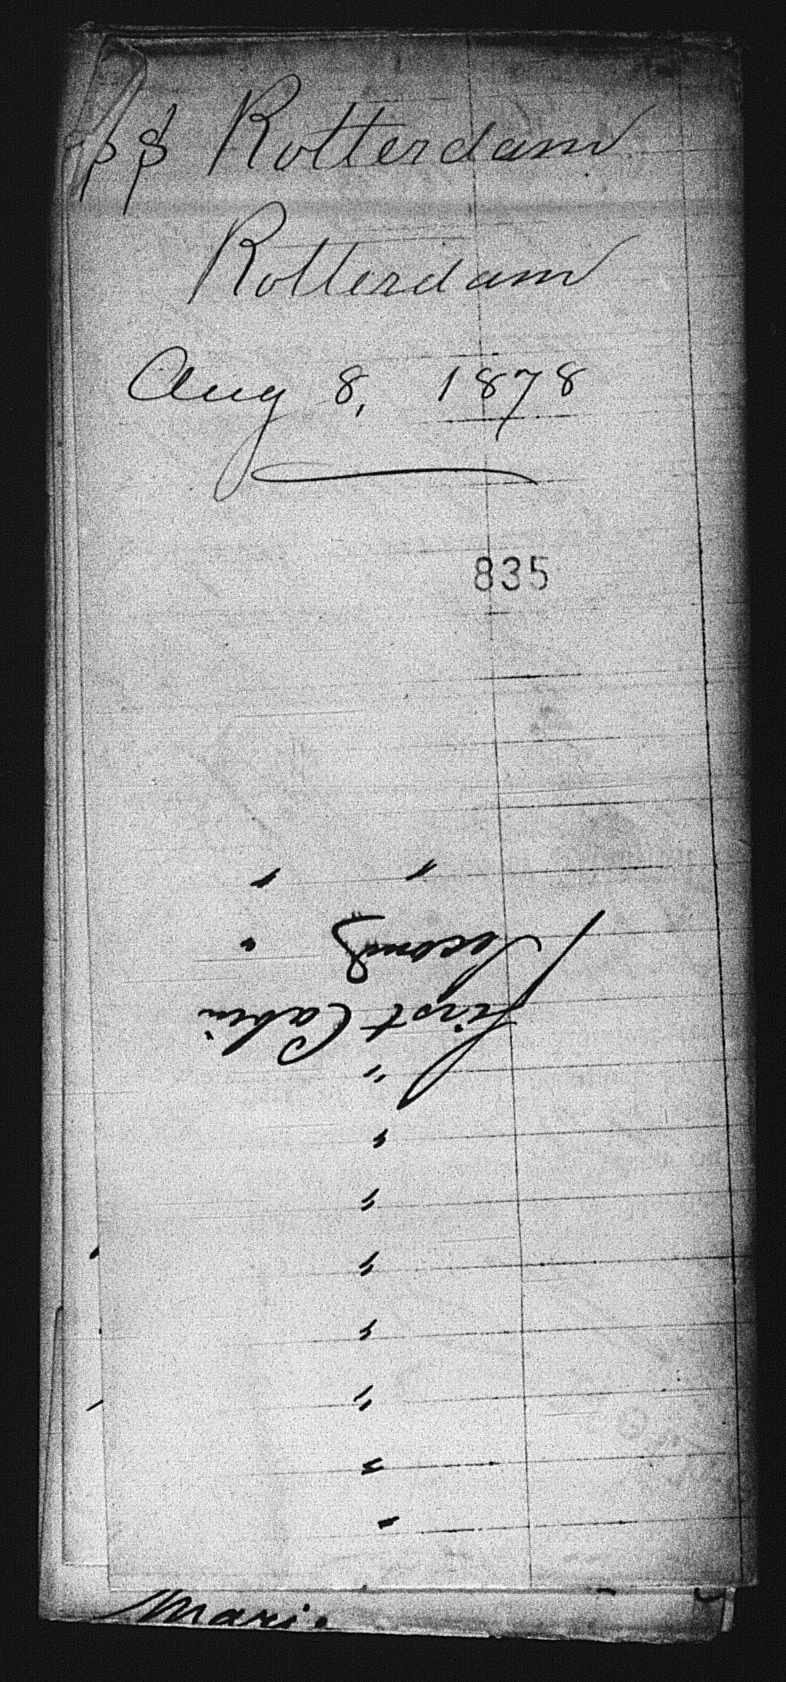 Rotterdam
Rotterdam
Aug 8, 1878
835
First Cabin
Second "
" "
Mari